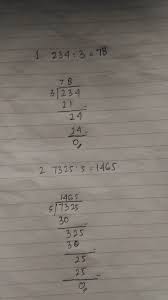 1. 234 : 3 = 78
78
3 234
21
24
24
0
2. 7325 : 5 = 1465
1465
5 7325
30
325
30
25
25
0